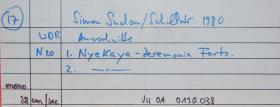 17 Simon Sudan/Schilluk 1980
WDR Ausschnitte
N20 1. Nyekaya-Zeremonie Forts.
2. —"—
mono
28 cm/sec VII OA 0130.038